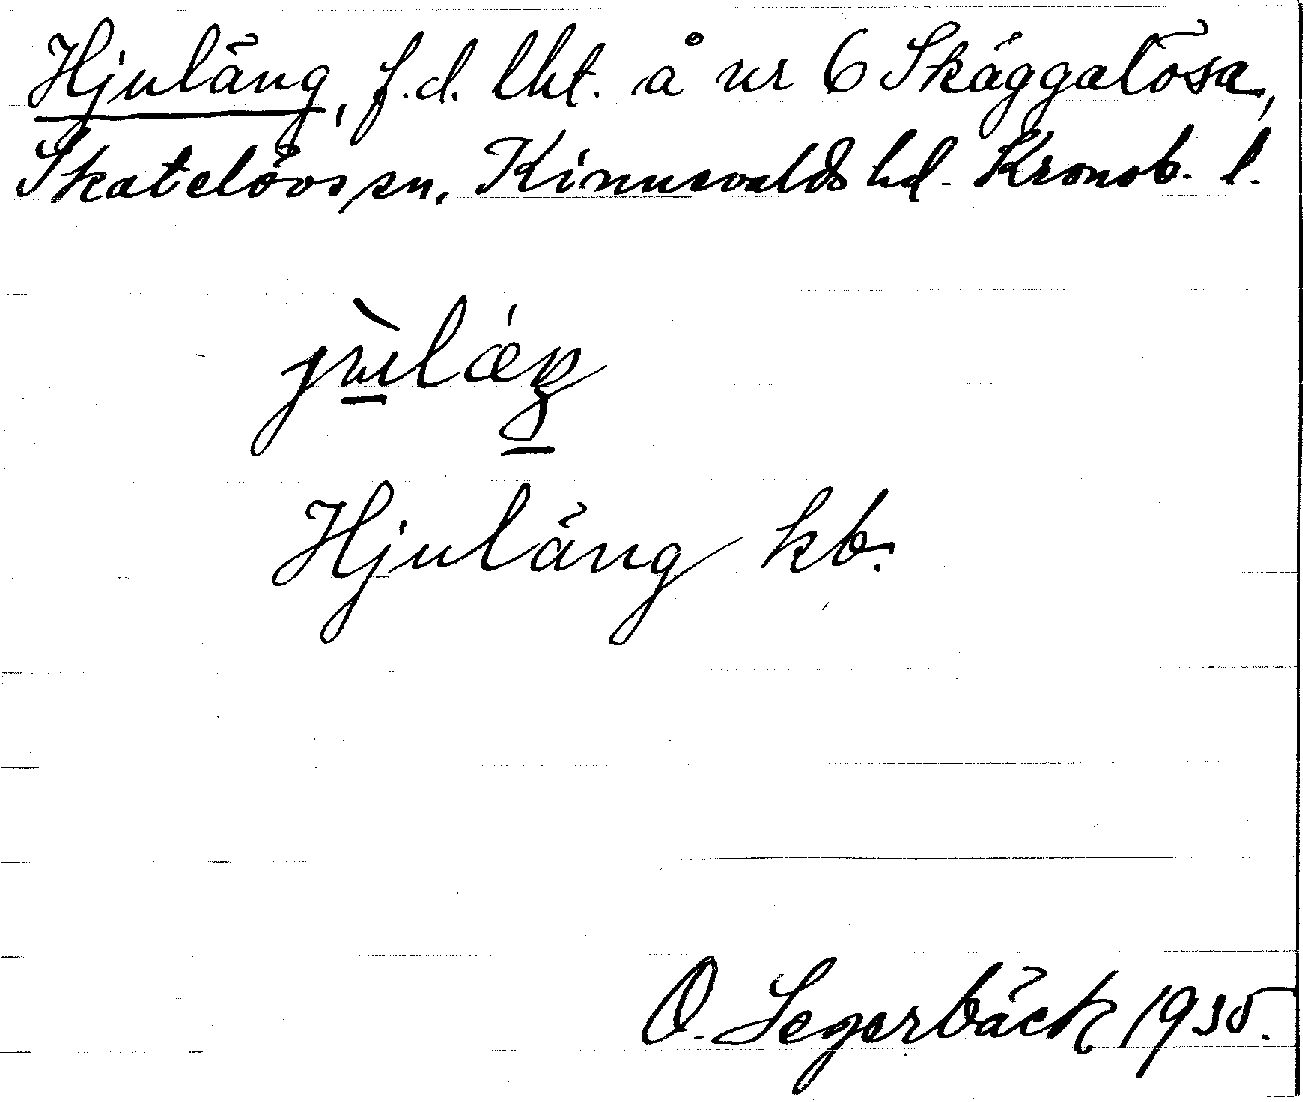 Hjuläng, f.d. lht. å nr 6 Skäggalösa,
Skatelövs sn, Kinnevalds hd. Kronob. l.
Hjuläng kb.
O. Segerbäck 1935.